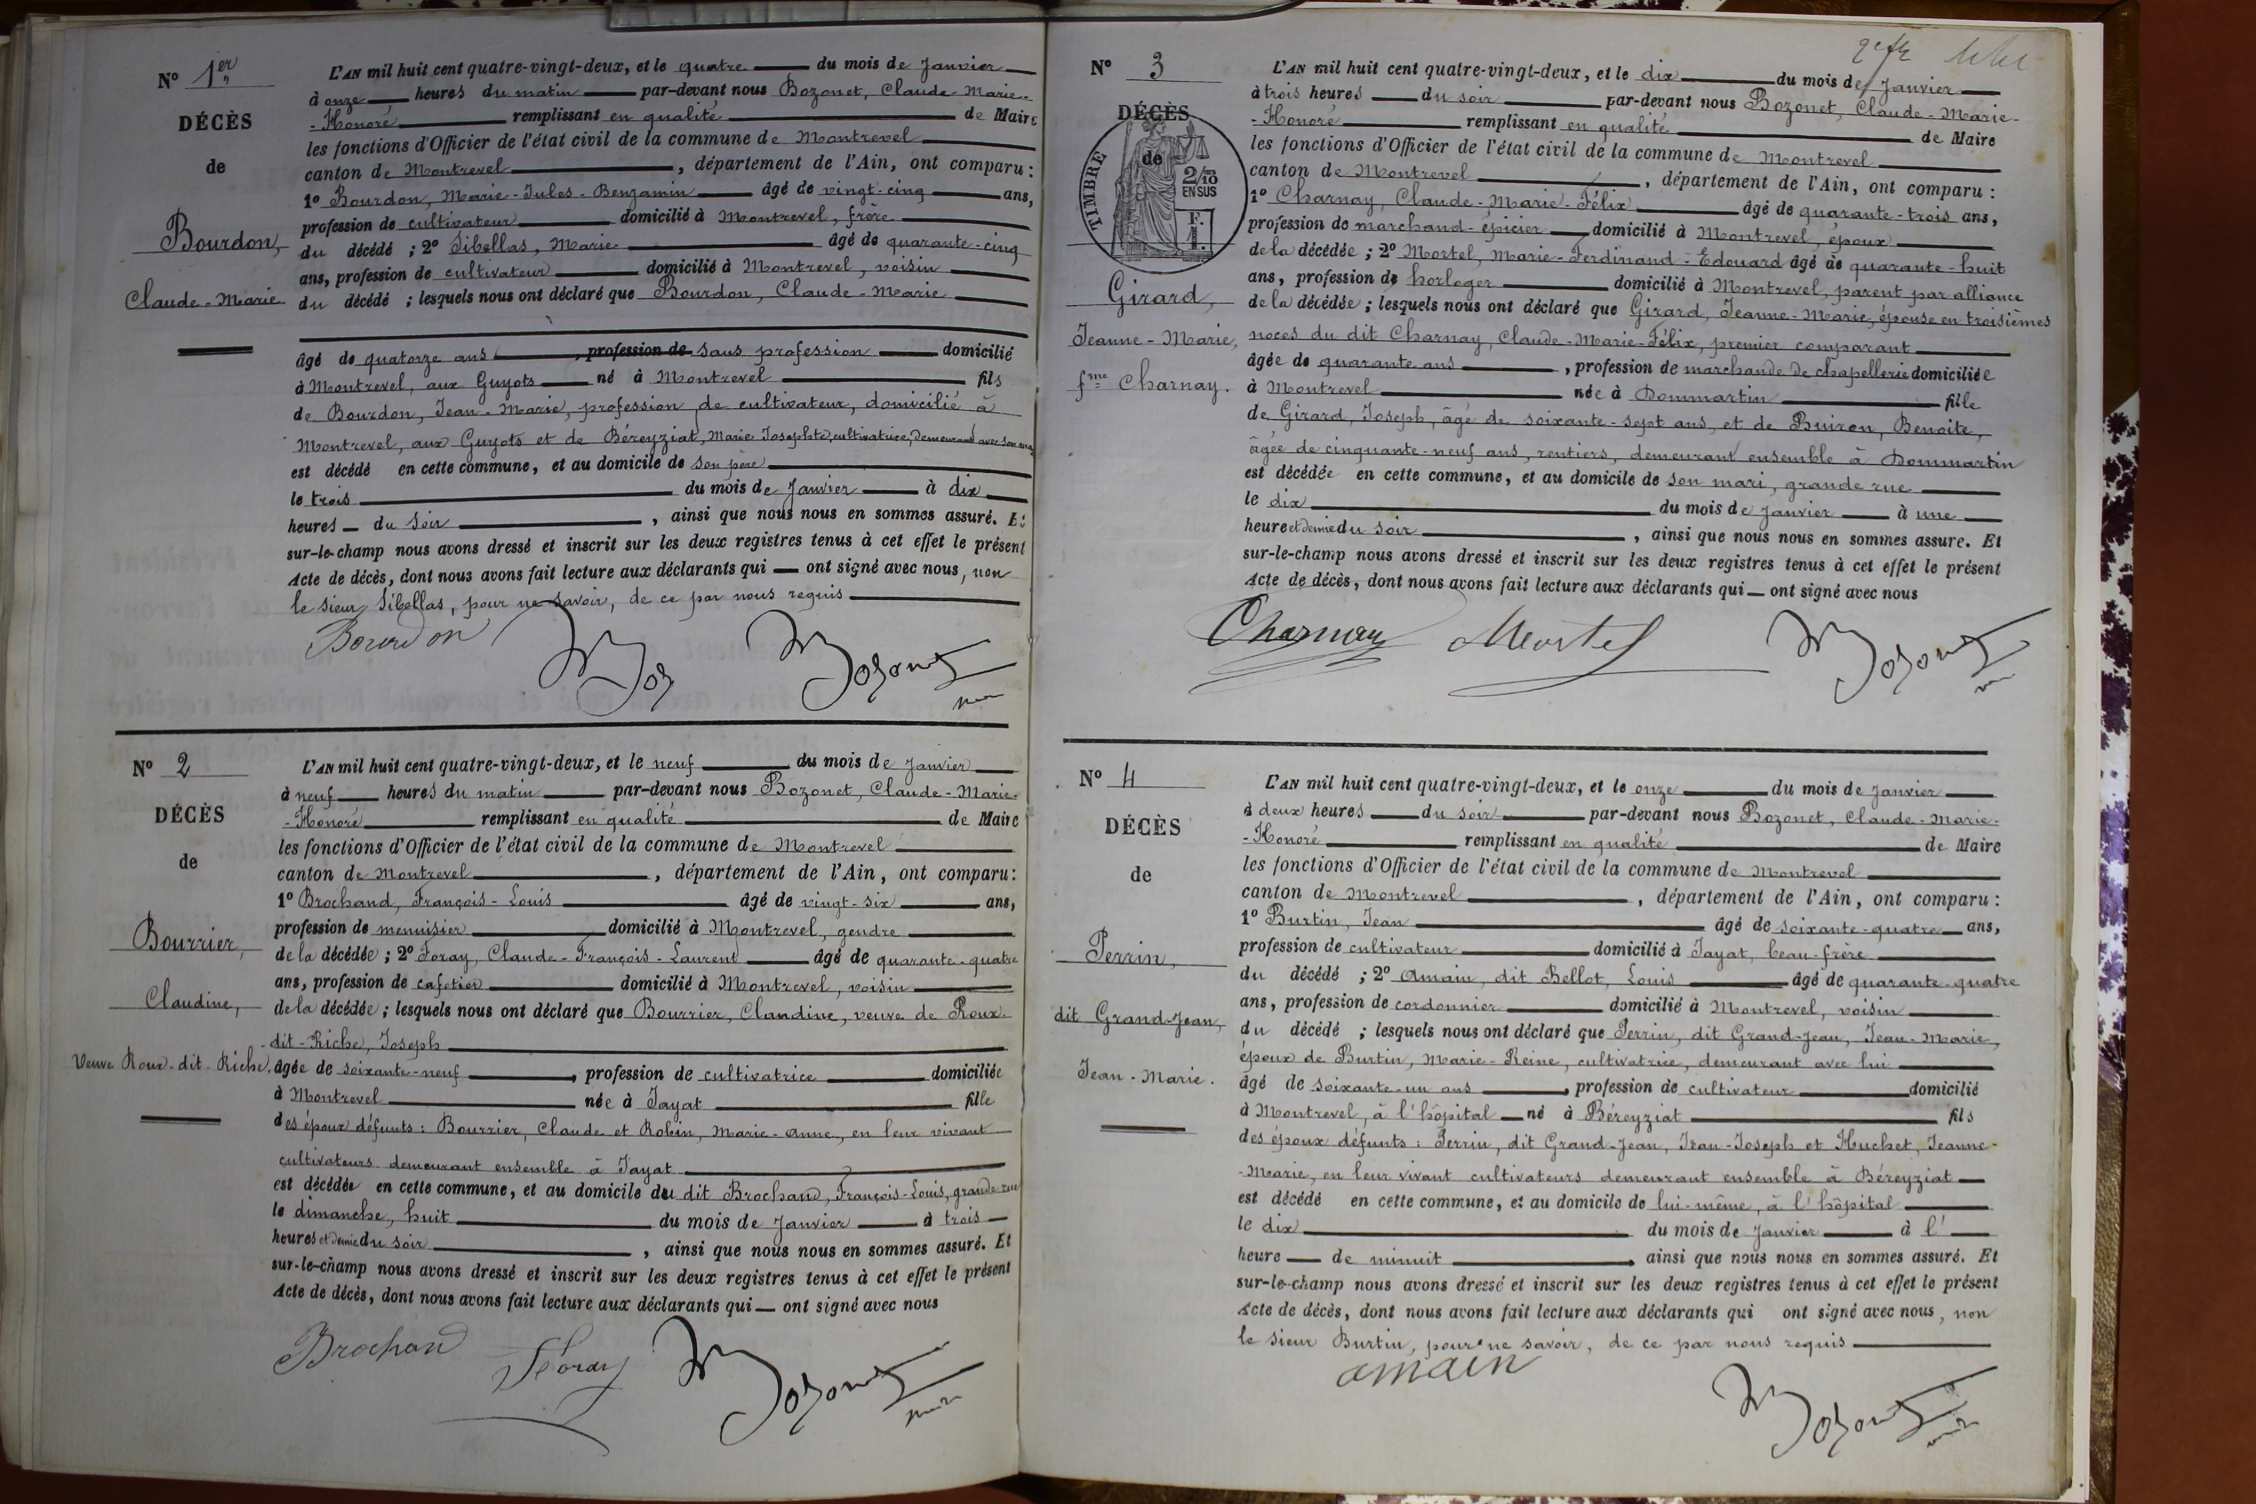 N° 1er
DÉCÈS
de
Bourdon,
Claude-Marie
L'AN mil huit cent quatre-vingt-deux, et le quatre du mois de Janvier
à onze heures du matin par-devant nous Bozonet, Claude-Marie-
-Honoré remplissant en qualité de Maire
les fonctions d'Officier de l'état civil de la commune de Montrevel
canton de Montrevel, département de l'Ain, ont comparu :
1° Bourdon, Marie-Jules-Benjamin âgé de vingt-cinq ans,
profession de cultivateur domicilié à Montrevel, frère
du décédé ; 2° Sibellas, Marie âgé de quarante-cinq
ans, profession de cultivateur domicilié à Montrevel, voisin
du décédé ; lesquels nous ont déclaré que Bourdon, Claude-Marie
âgé de quatorze ans, profession de sans profession domicilié
à Montrevel, aux Guyots né à Montrevel fils
de Bourdon, Jean-Marie, profession de cultivateur, domicilié à
Montrevel, aux Guyots et de Béreyziat, Marie Josephte, cultivatrice, demeurant avec son mari
est décédé en cette commune, et au domicile de son père
le trois du mois de Janvier à dix
heures du soir, ainsi que nous nous en sommes assuré. Et
sur-le-champ nous avons dressé et inscrit sur les deux registres tenus à cet effet le présent
Acte de décès, dont nous avons fait lecture aux déclarants qui ont signé avec nous, non
le sieur Sibellas, pour ne savoir, de ce par nous requis
Bourdon Boz Bozonet
N° 2
DÉCÈS
de
Bourrier,
Claudine,
Veuve Roux-dit-Riche.
L'AN mil huit cent quatre-vingt-deux, et le neuf du mois de Janvier
à neuf heures du matin par-devant nous Bozonet, Claude-Marie-
-Honoré remplissant en qualité de Maire
les fonctions d'Officier de l'état civil de la commune de Montrevel
canton de Montrevel, département de l'Ain, ont comparu :
1° Brochand, François-Louis âgé de vingt-six ans,
profession de menuisier domicilié à Montrevel, gendre
de la décédée ; 2° Foray, Claude-François-Laurent âgé de quarante-quatre
ans, profession de cafetier domicilié à Montrevel, voisin
de la décédée ; lesquels nous ont déclaré que Bourrier, Claudine, veuve de Roux-
-dit-Riche, Joseph
âgée de soixante-neuf, profession de cultivatrice domiciliée
à Montrevel née à Jayat fille
des époux défunts : Bourrier, Claude et Robin, Marie-Anne, en leur vivant
cultivateurs demeurant ensemble à Jayat
est décédée en cette commune, et au domicile du dit Brochand, François-Louis, grande rue
le dimanche, huit du mois de Janvier à trois
heures et demie du soir, ainsi que nous nous en sommes assuré. Et
sur-le-champ nous avons dressé et inscrit sur les deux registres tenus à cet effet le présent
Acte de décès, dont nous avons fait lecture aux déclarants qui ont signé avec nous
Brochand Foray Bozonet
N° 3
DÉCÈS
de
TIMBRE
2/10 EN SUS
Girard,
Jeanne-Marie,
fme Charnay.
L'AN mil huit cent quatre-vingt-deux, et le dix du mois de Janvier
à trois heures du soir par-devant nous Bozonet, Claude-Marie-
-Honoré remplissant en qualité de Maire
les fonctions d'Officier de l'état civil de la commune de Montrevel
canton de Montrevel, département de l'Ain, ont comparu :
1° Charnay, Claude-Marie-Félix âgé de quarante-trois ans,
profession de marchand-épicier domicilié à Montrevel, époux
de la décédée ; 2° Mortel, Marie-Ferdinand-Edouard âgé de quarante-huit
ans, profession de horloger domicilié à Montrevel, parent par alliance
de la décédée ; lesquels nous ont déclaré que Girard, Jeanne-Marie, épouse en troisièmes
noces du dit Charnay, Claude-Marie-Félix, premier comparant
âgée de quarante ans, profession de marchande de chapellerie domiciliée
à Montrevel née à Dommartin fille
de Girard, Joseph, âgé de soixante-sept ans, et de Buiron, Benoite,
âgée de cinquante-neuf ans, rentiers, demeurant ensemble à Dommartin
est décédée en cette commune, et au domicile de son mari, grande rue
le dix du mois de Janvier à une
heure et demie du soir, ainsi que nous nous en sommes assuré. Et
sur-le-champ nous avons dressé et inscrit sur les deux registres tenus à cet effet le présent
Acte de décès, dont nous avons fait lecture aux déclarants qui ont signé avec nous
Charnay Mortel Bozonet
N° 4
DÉCÈS
de
Perrin,
dit Grand-Jean,
Jean-Marie.
L'AN mil huit cent quatre-vingt-deux, et le onze du mois de Janvier
à deux heures du soir par-devant nous Bozonet, Claude-Marie-
-Honoré remplissant en qualité de Maire
les fonctions d'Officier de l'état civil de la commune de Montrevel
canton de Montrevel, département de l'Ain, ont comparu :
1° Burtin, Jean âgé de soixante-quatre ans,
profession de cultivateur domicilié à Jayat, beau-frère
du décédé ; 2° Amain, dit Bellot, Louis âgé de quarante-quatre
ans, profession de cordonnier domicilié à Montrevel, voisin
du décédé ; lesquels nous ont déclaré que Perrin, dit Grand-Jean, Jean-Marie,
époux de Burtin, Marie-Reine, cultivatrice, demeurant avec lui
âgé de soixante-un ans, profession de cultivateur domicilié
à Montrevel, à l'hôpital né à Béreyziat fils
des époux défunts : Perrin, dit Grand-Jean, Jean-Joseph et Huchet, Jeanne-
-Marie, en leur vivant cultivateurs demeurant ensemble à Béreyziat
est décédé en cette commune, et au domicile de lui-même, à l'hôpital
le dix du mois de Janvier à l'
heure de minuit, ainsi que nous nous en sommes assuré. Et
sur-le-champ nous avons dressé et inscrit sur les deux registres tenus à cet effet le présent
Acte de décès, dont nous avons fait lecture aux déclarants qui ont signé avec nous, non
le sieur Burtin, pour ne savoir, de ce par nous requis
amain Bozonet